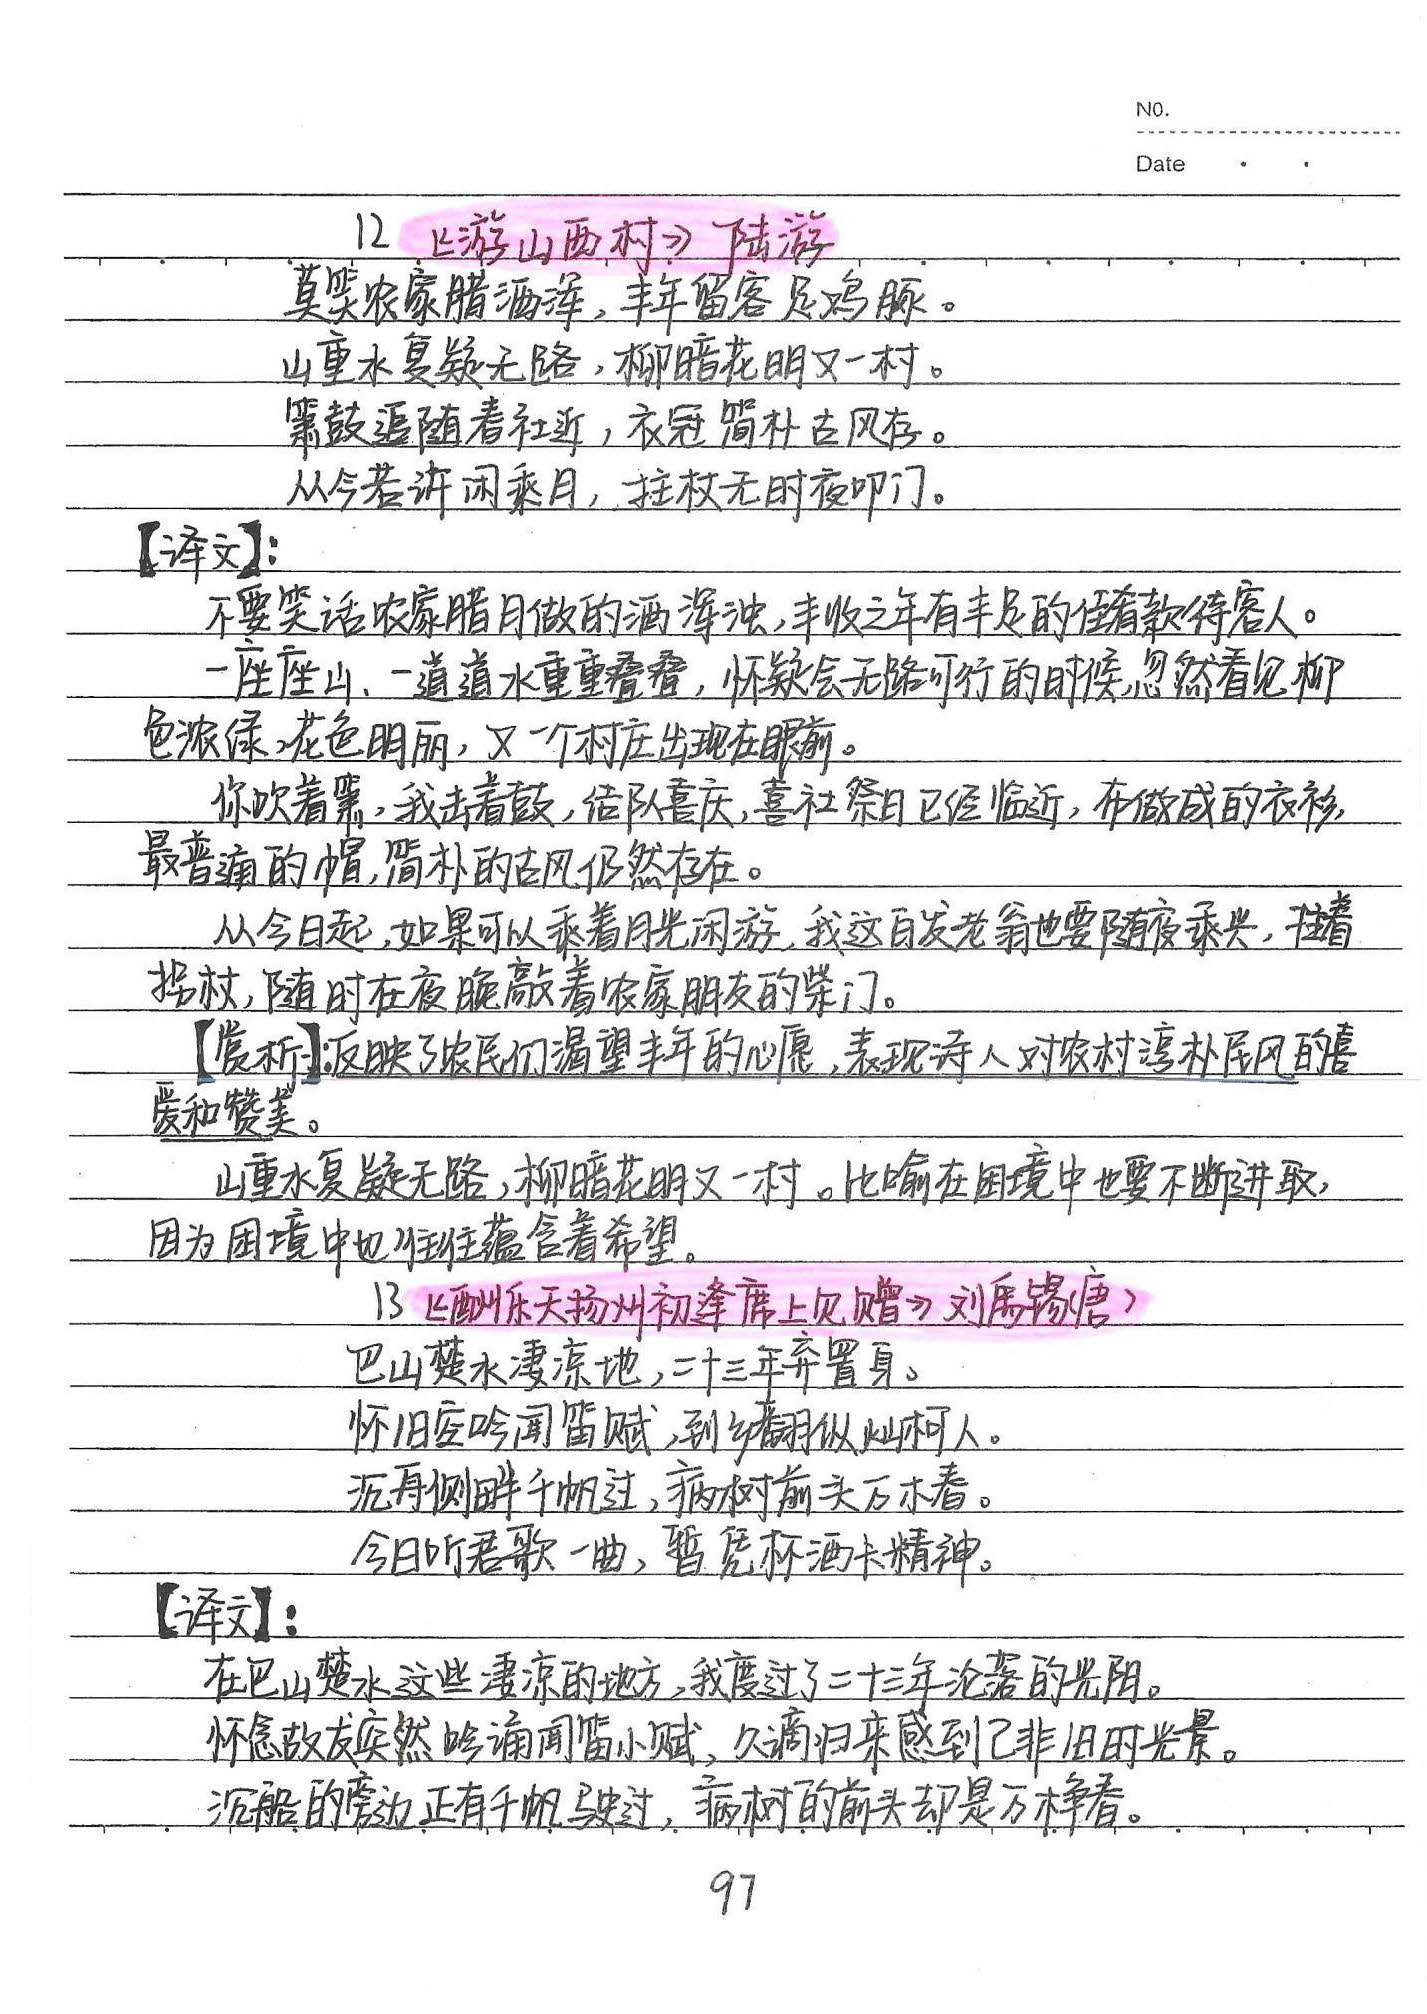 NO.
Date
12 《游山西村》陆游
莫笑农家腊酒浑，丰年留客足鸡豚。
山重水复疑无路，柳暗花明又一村。
箫鼓追随春社近，衣冠简朴古风存。
从今若许闲乘月，拄杖无时夜叩门。
【译文】：
不要笑话农家腊月做的酒浑浊，丰收之年有丰足的佳肴款待客人。
一座座山、一道道水重重叠叠，怀疑会无路可行的时候，忽然看见柳
色浓绿，花色明丽，又一个村庄出现在眼前。
你吹着箫，我击着鼓，结队喜庆，喜社祭日已经临近，布做成的衣衫，
最普通的帽，简朴的古风仍然存在。
从今日起，如果可以乘着月光闲游，我这白发老翁也要随夜乘兴，拄着
拐杖，随时在夜晚敲着农家朋友的柴门。
【赏析】：反映了农民们渴望丰年的心愿，表现诗人对农村淳朴民风的喜
爱和赞美。
山重水复疑无路，柳暗花明又一村。比喻在困境中也要不断进取，
因为困境中也往往蕴含着希望。
13 《酬乐天扬州初逢席上见赠》刘禹锡（唐）
巴山楚水凄凉地，二十三年弃置身。
怀旧空吟闻笛赋，到乡翻似烂柯人。
沉舟侧畔千帆过，病树前头万木春。
今日听君歌一曲，暂凭杯酒长精神。
【译文】：
在巴山楚水这些凄凉的地方，我度过了二十三年沦落的光阴。
怀念故友突然吟诵闻笛小赋，久谪归来感到已非旧时光景。
沉船的旁边正有千帆驶过，病树的前头却是万木争春。
97